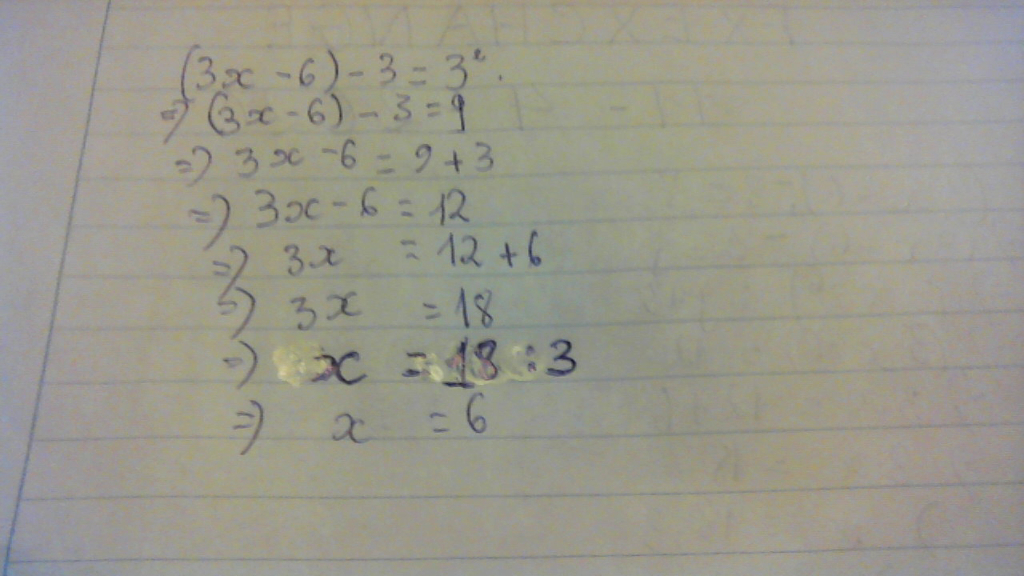 (3x - 6) - 3 = 3².
=> (3x - 6) - 3 = 9
=> 3x - 6 = 9 + 3
=> 3x - 6 = 12
=> 3x = 12 + 6
=> 3x = 18
=> x = 18 : 3
=> x = 6